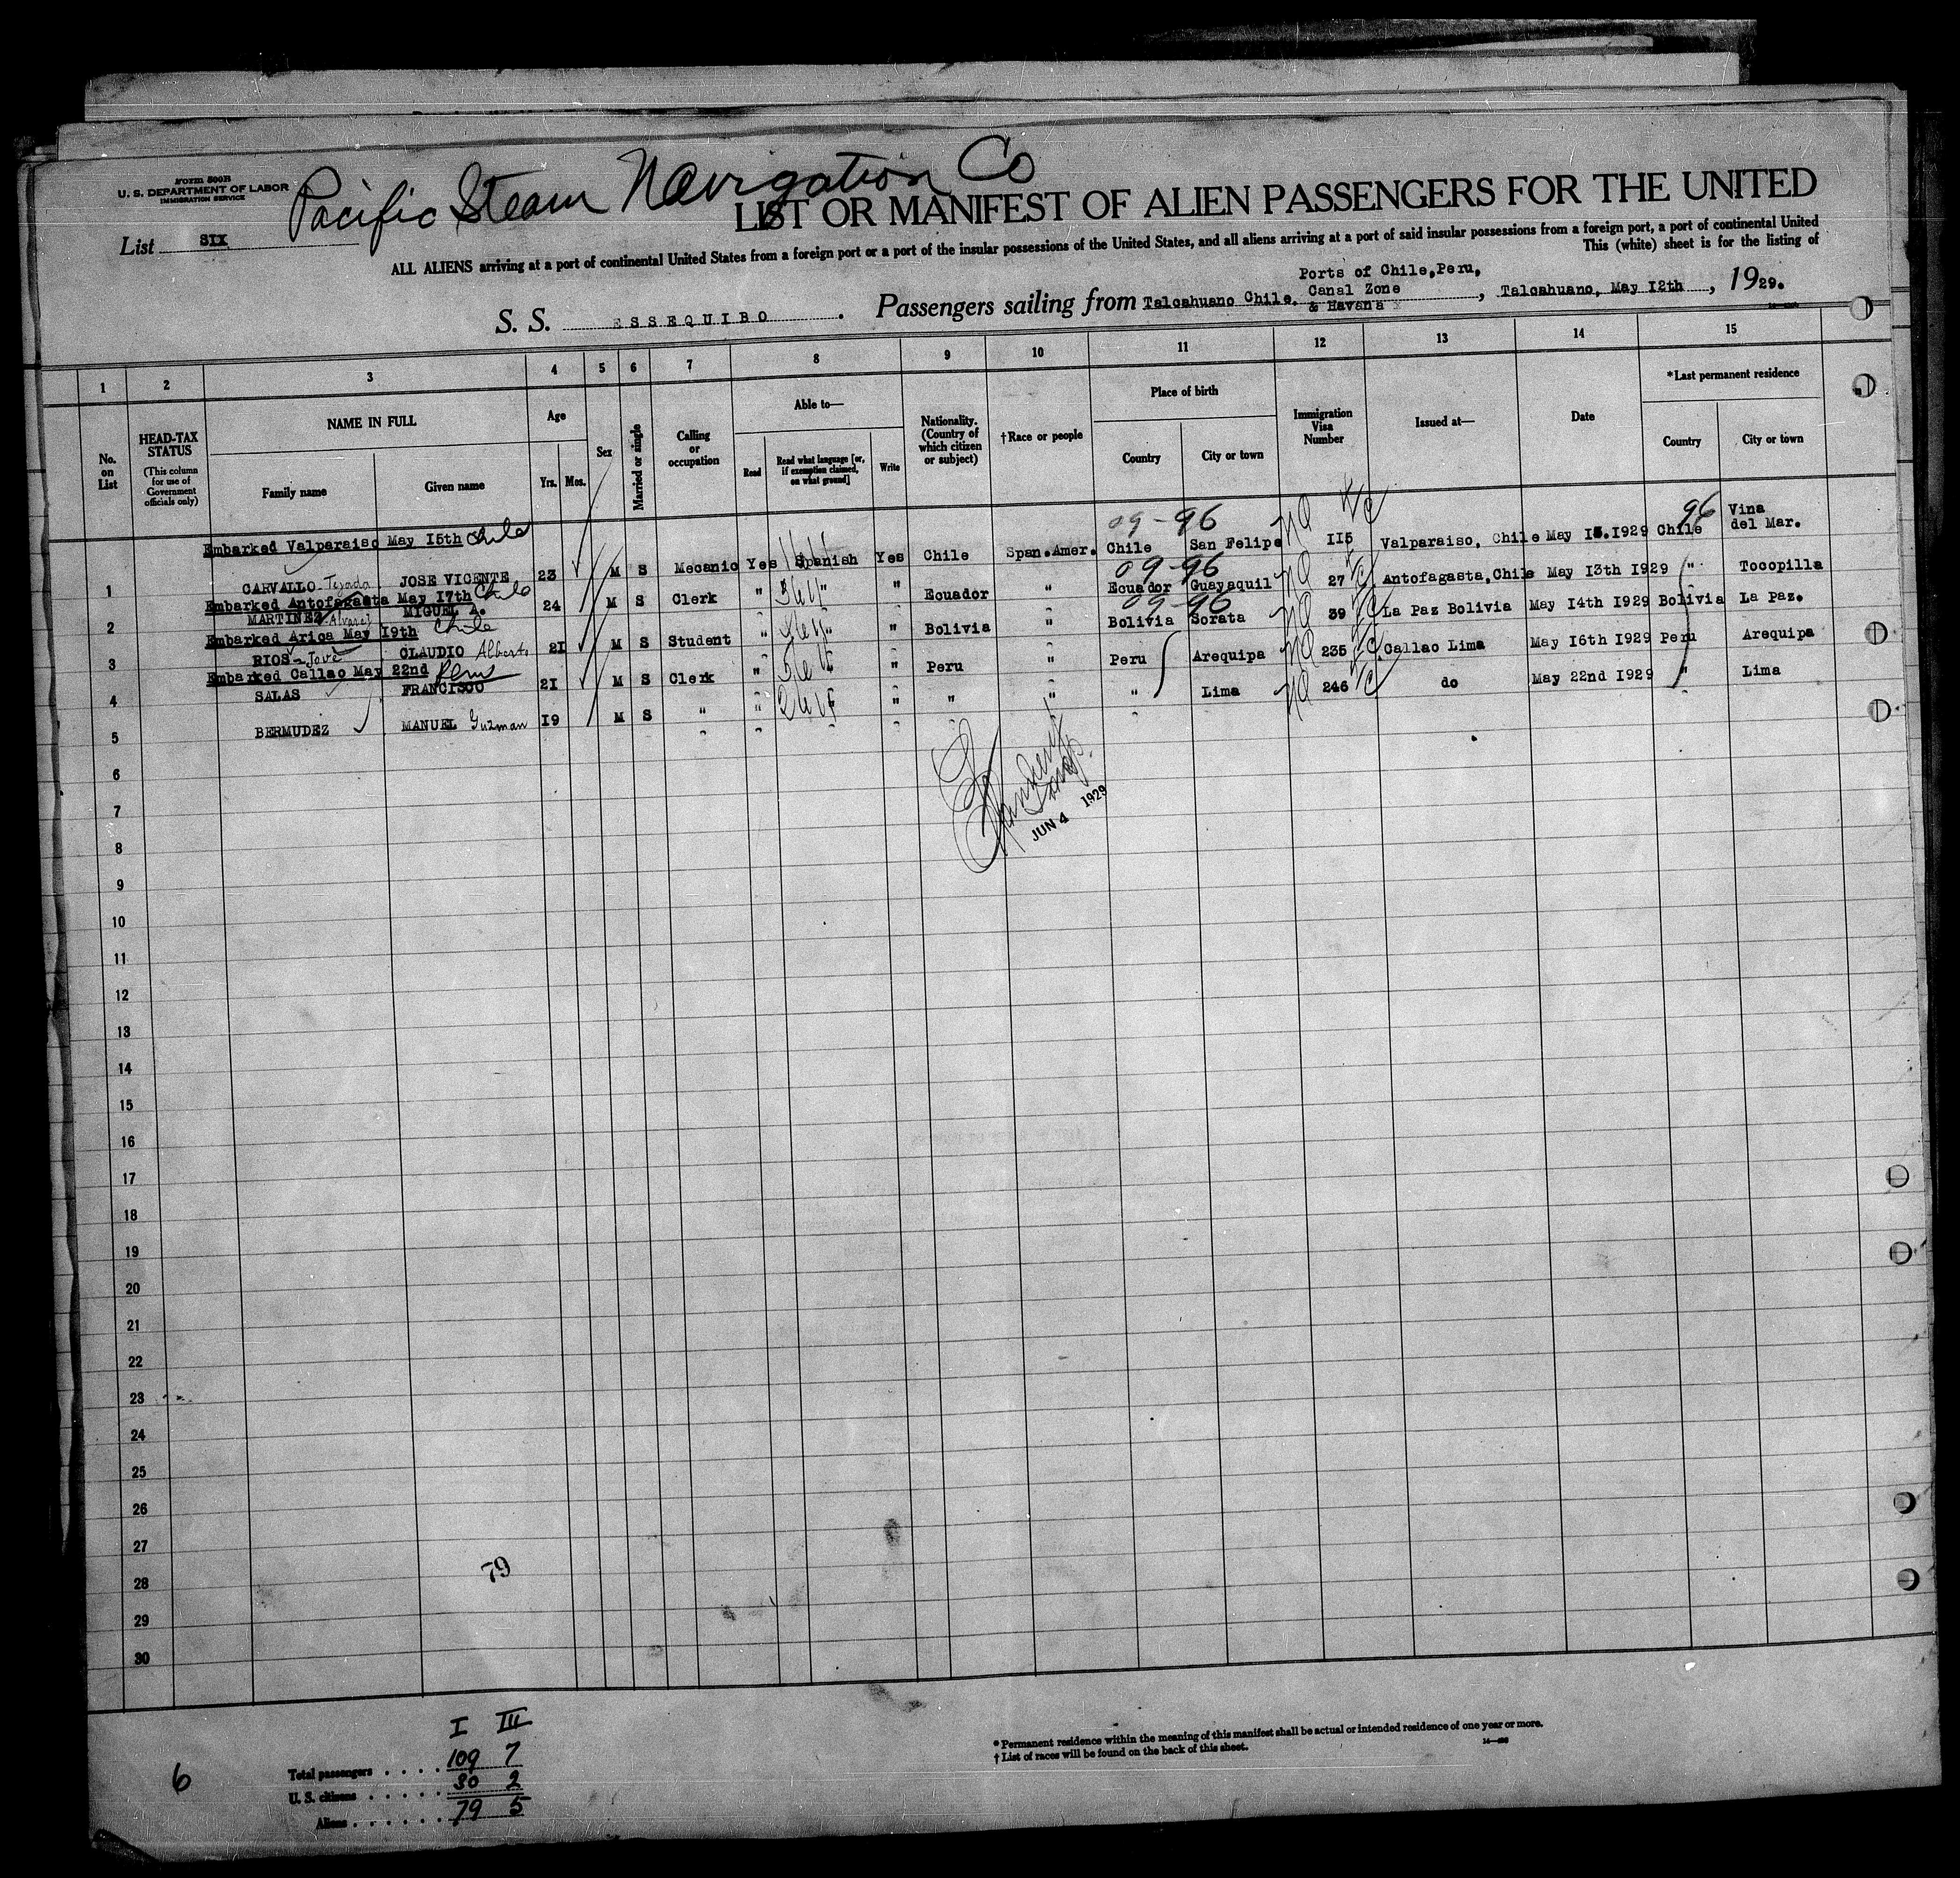 Form 500B
U. S. DEPARTMENT OF LABOR
IMMIGRATION SERVICE
Pacific Steam Navigation Co
LIST OR MANIFEST OF ALIEN PASSENGERS FOR THE UNITED
List SIX
ALL ALIENS arriving at a port of continental United States from a foreign port or a port of the insular possessions of the United States, and all aliens arriving at a port of said insular possessions from a foreign port, a port of continental United
This (white) sheet is for the listing of
S. S. ESSEQUIBO. Passengers sailing from Talcahuano Chile, Ports of Chile, Peru, Canal Zone & Havana, Talcahuano, May 12th, 1929.
1 2 3 4 5 6 7 8 9 10 11 12 13 14 15
No. on List
HEAD-TAX STATUS (This column for use of Government officials only)
NAME IN FULL Family name Given name
Age Yrs. Mos.
Sex
Married or single
Calling or occupation
Able to— Read Read what language [or, if exemption claimed, on what ground] Write
Nationality. (Country of which citizen or subject)
†Race or people
Place of birth Country City or town
Immigration Visa Number
Issued at—
Date
*Last permanent residence Country City or town
Embarked Valparaiso May 15th Chile
09-96
1 CARVALLO Tejada JOSE VICENTE 23 M S Mecanic Yes Spanish Yes Chile Span.Amer. Chile San Felipe 115 Valparaiso, Chile May 15.1929 Chile 96 Vina del Mar.
Embarked Antofagasta May 17th Chile
09-96
2 MARTINEZ Alvarez MIGUEL A. 24 M S Clerk " " " Ecuador " Ecuador Guayaquil 27 Antofagasta, Chile May 13th 1929 " Tocopilla
Embarked Arica May 19th Chile
09-96
3 RIOS - Jove CLAUDIO Alberto 21 M S Student " " " Bolivia " Bolivia Sorata 39 La Paz Bolivia May 14th 1929 Bolivia La Paz.
Embarked Callao May 22nd Peru
4 SALAS FRANCISCO 21 M S Clerk " " Peru " Peru Arequipa 235 Callao Lima May 16th 1929 Peru Arequipa
5 BERMUDEZ MANUEL Guzman 19 M S " " " " " " Lima 246 do May 22nd 1929 " Lima
JUN 4 1929
6
7
8
9
10
11
12
13
14
15
16
17
18
19
20
21
22
23
24
25
26
27
28
29
30
79
I III
Total passengers . . . . 109 7
U. S. citizens . . . . . 30 2
Aliens . . . . . . 79 5
6
*Permanent residence within the meaning of this manifest shall be actual or intended residence of one year or more.
†List of races will be found on the back of this sheet.